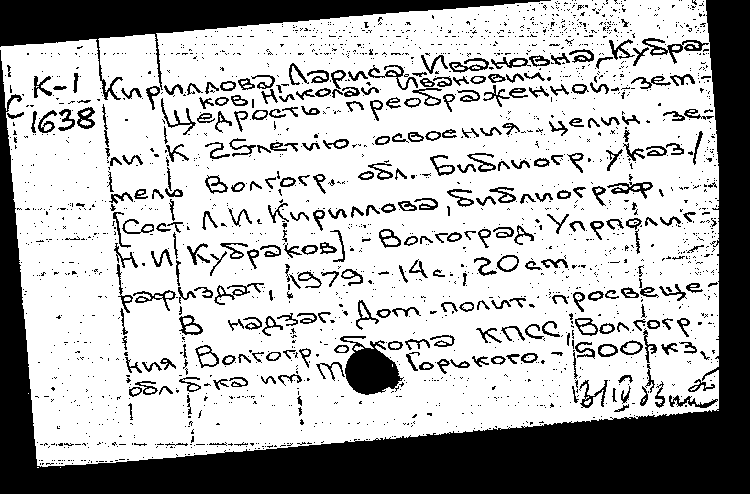 К-1
С 1638
Кириллова, Лариса Ивановна, Кубра-
ков, Николай Иванович.
Щедрость преображенной зем-
ли: К 25летию освоения целин. зе-
мель Волгогр. обл. Библиогр. указ./
[Сост. Л.И. Кириллова, библиограф,
Н.И. Кубраков]. - Волгоград: Упрполиг-
рафиздат, 1979. - 14 с.; 20 см.
В надзаг.: Дом полит. просвеще-
ния Волгогр. обкома КПСС, Волгогр.
обл. б-ка им. М. Горького. - 500 экз.